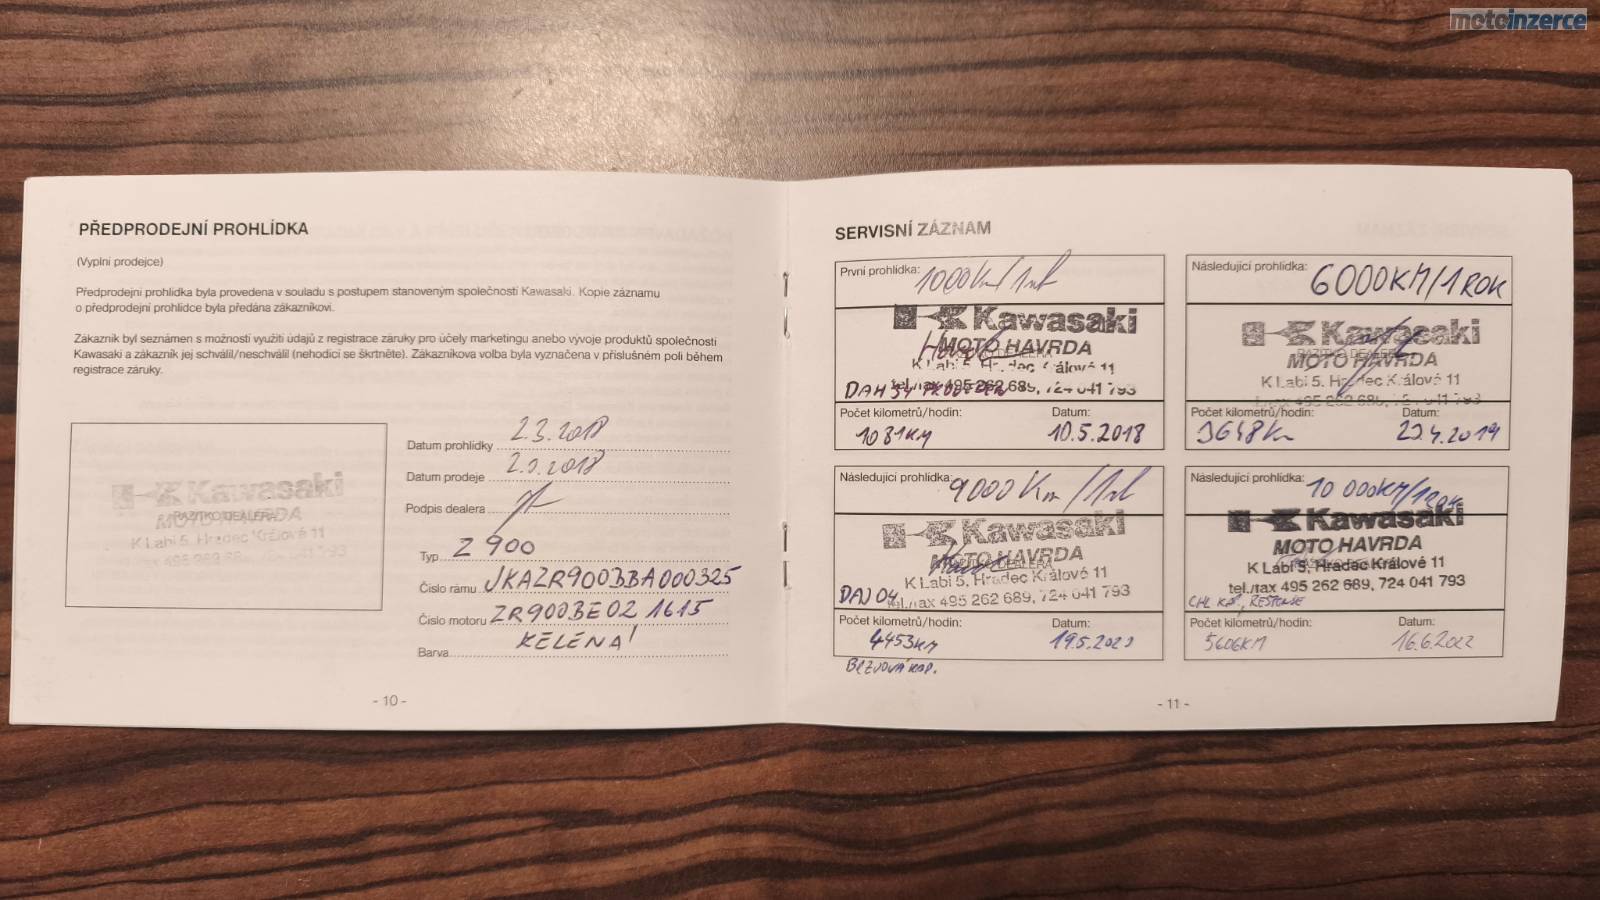 motoinzerce
PŘEDPRODEJNÍ PROHLÍDKA
(Vyplní prodejce)
Předprodejní prohlídka byla provedena v souladu s postupem stanoveným společností Kawasaki. Kopie záznamu
o předprodejní prohlídce byla předána zákazníkovi.
Zákazník byl seznámen s možností využití údajů z registrace záruky pro účely marketingu anebo vývoje produktů společnosti
Kawasaki a zákazník jej schválil/neschválil (nehodící se škrtněte). Zákazníkova volba byla vyznačena v příslušném poli během
registrace záruky.
Kawasaki
RAZÍTKO DEALERA
MOTO HAVRDA
K Labi 5, Hradec Králové 11
Datum prohlídky 2.3.2018
Datum prodeje 2.3.2018
Podpis dealera
Typ Z 900
Číslo rámu JKAZR900BBA000325
Číslo motoru ZR900BE02 1615
Barva
- 10 -
SERVISNÍ ZÁZNAM
První prohlídka: 1000 Km/
Kawasaki
MOTO HAVRDA
K Labi 5, Hradec Králové 11
tel./fax 495 262 689, 724 041 793
Počet kilometrů/hodin: Datum:
1081KM 10.5.2018
Následující prohlídka: 6000KM/1 ROK
Kawasaki
RAZÍTKO DEALERA
MOTO HAVRDA
K Labi 5, Hradec Králové 11
495 262 689, 724 041 793
Počet kilometrů/hodin: Datum:
3648Km 2019
Následující prohlídka: 9000 Km/
Kawasaki
RAZÍTKO DEALERA
MOTO HAVRDA
K Labi 5, Hradec Králové 11
tel./fax 495 262 689, 724 041 793
Počet kilometrů/hodin: Datum:
4453KM 19.5.
Následující prohlídka: 10 000KM/1 ROK
Kawasaki
MOTO HAVRDA
K Labi 5, Hradec Králové 11
tel./fax 495 262 689, 724 041 793
Počet kilometrů/hodin: Datum:
5606KM 16.6.2022
- 11 -